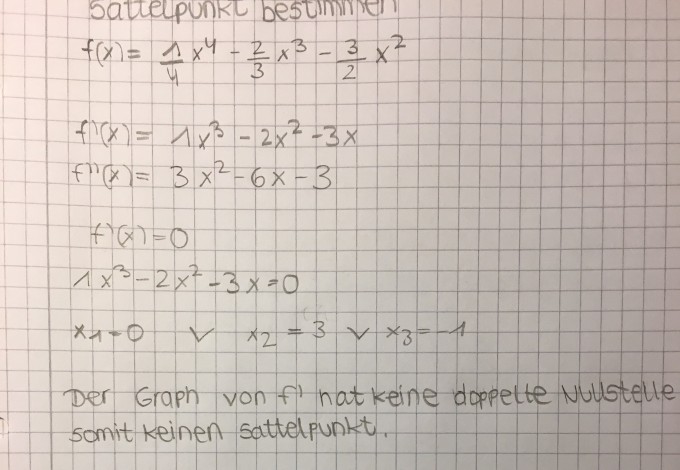 Sattelpunkt bestimmen
f(x) = 1/4 x⁴ - 2/3 x³ - 3/2 x²
f'(x) = 1x³ - 2x² - 3x
f''(x) = 3x² - 6x - 3
f'(x) = 0
1x³ - 2x² - 3x = 0
x1 = 0 ∨ x2 = 3 ∨ x3 = -1
Der Graph von f' hat keine doppelte Nullstelle
somit keinen Sattelpunkt.